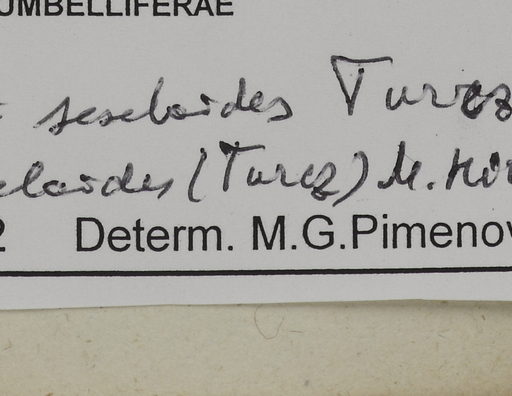 UMBELLIFERAE
seseloides Turcz
eloides (Turcz) M.
2 Determ. M.G.Pimenov